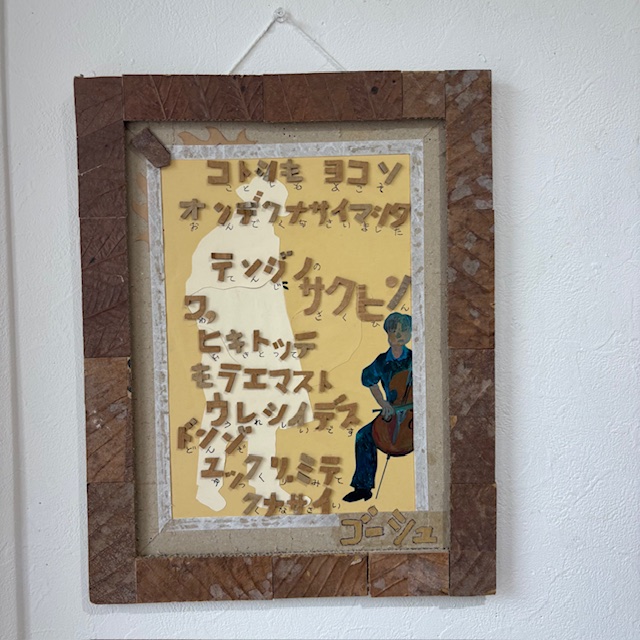 コトシモ ヨコソ
ことしもよこそ
オンデクナサイマシタ
おんでくなさいました
テンジノ
てんじの
サクヒン
さくひん
ワ
ヒキトッテ
モラエマスト
ウレシイデス
うれしいです
ドンゾ
どんぞ
ユックリ、ミテ
ゆっくりみて
クナサイ
くなさい
ゴーシュ